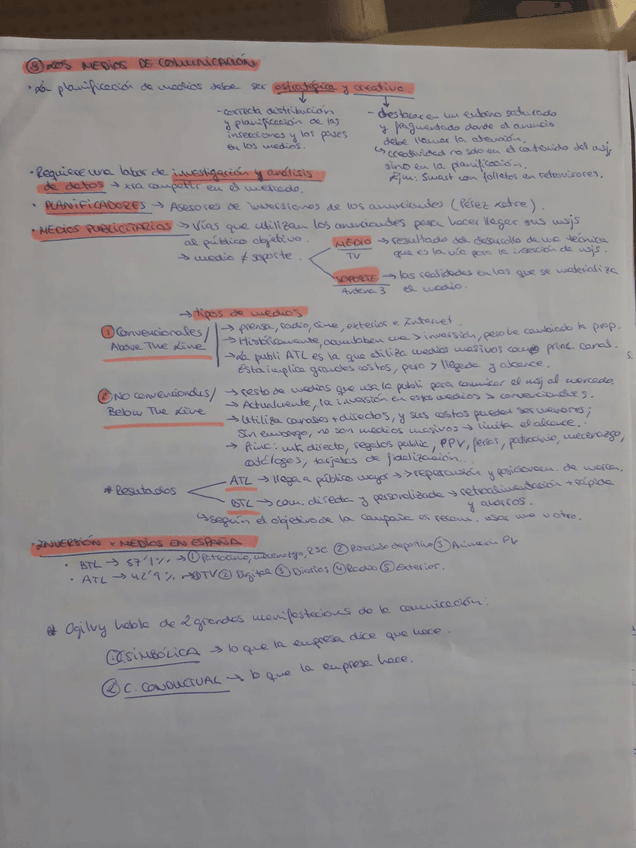 ③ LOS MEDIOS DE COMUNICACIÓN
• La planificación de medios debe ser estratégica y creativa
- correcta distribución y planificación de las inserciones y los pases en los medios.
- destacar en un entorno saturado y fragmentado donde el anuncio debe llamar la atención.
↳ creatividad no solo en el contenido del msj, sino en la planificación.
Ejm: Smart con folletos en retrovisores.
• Requiere una labor de investigación y análisis
de datos → xra competir en el mercado.
• PLANIFICADORES → Asesores de inversiones de los anunciantes (Pérez Latre).
• MEDIOS PUBLICITARIOS → Vías que utilizan los anunciantes para hacer llegar sus msjs
al público objetivo.
→ medio ≠ soporte.
MEDIO → resultado del desarrollo de una técnica
TV que es la vía para la inserción de msjs.
SOPORTE → las realidades en las que se materializa
Antena 3 el medio.
→ tipos de medios
① Convencionales/
Above The Line
→ prensa, radio, cine, exterior e Internet.
→ Históricamente, acumulaban una > inversión, pero ha cambiado la prop.
→ La publi ATL es la que utiliza medios masivos como princ canal.
Esta implica grandes costos, pero > llegada y alcance.
② No convencionales/
Below The Line
→ resto de medios que usa la publi para comunicar el msj al mercado.
→ Actualmente, la inversión en estos medios > convencionales.
→ Utiliza canales + directos, y sus costos pueden ser menores;
Sin embargo, no son medios masivos → limita el alcance.
→ Princ: mk directo, regalos public, PPV, ferias, patrocinio, mecenazgo,
catálogos, tarjetas de fidelización.
* Resultados
ATL → llega a público mayor → > repercusión y posicionam. de marca.
BTL → com. directa y personalizada → retroalimentación + rápida
y ahorros.
↳ según el objetivo de la campaña es recom. usar una u otra.
• INVERSIÓN + MEDIOS EN ESPAÑA
• BTL → 57'1% → ① Patrocinio, mecenazgo, RSC ② Patrocinio deportivo ③ Animación PV
• ATL → 42'9% → ① TV ② Digital ③ Diarios ④ Radio ⑤ Exterior.
* Ogilvy habla de 2 grandes manifestaciones de la comunicación:
① C. SIMBÓLICA → lo que la empresa dice que hace.
② C. CONDUCTUAL → lo que la empresa hace.